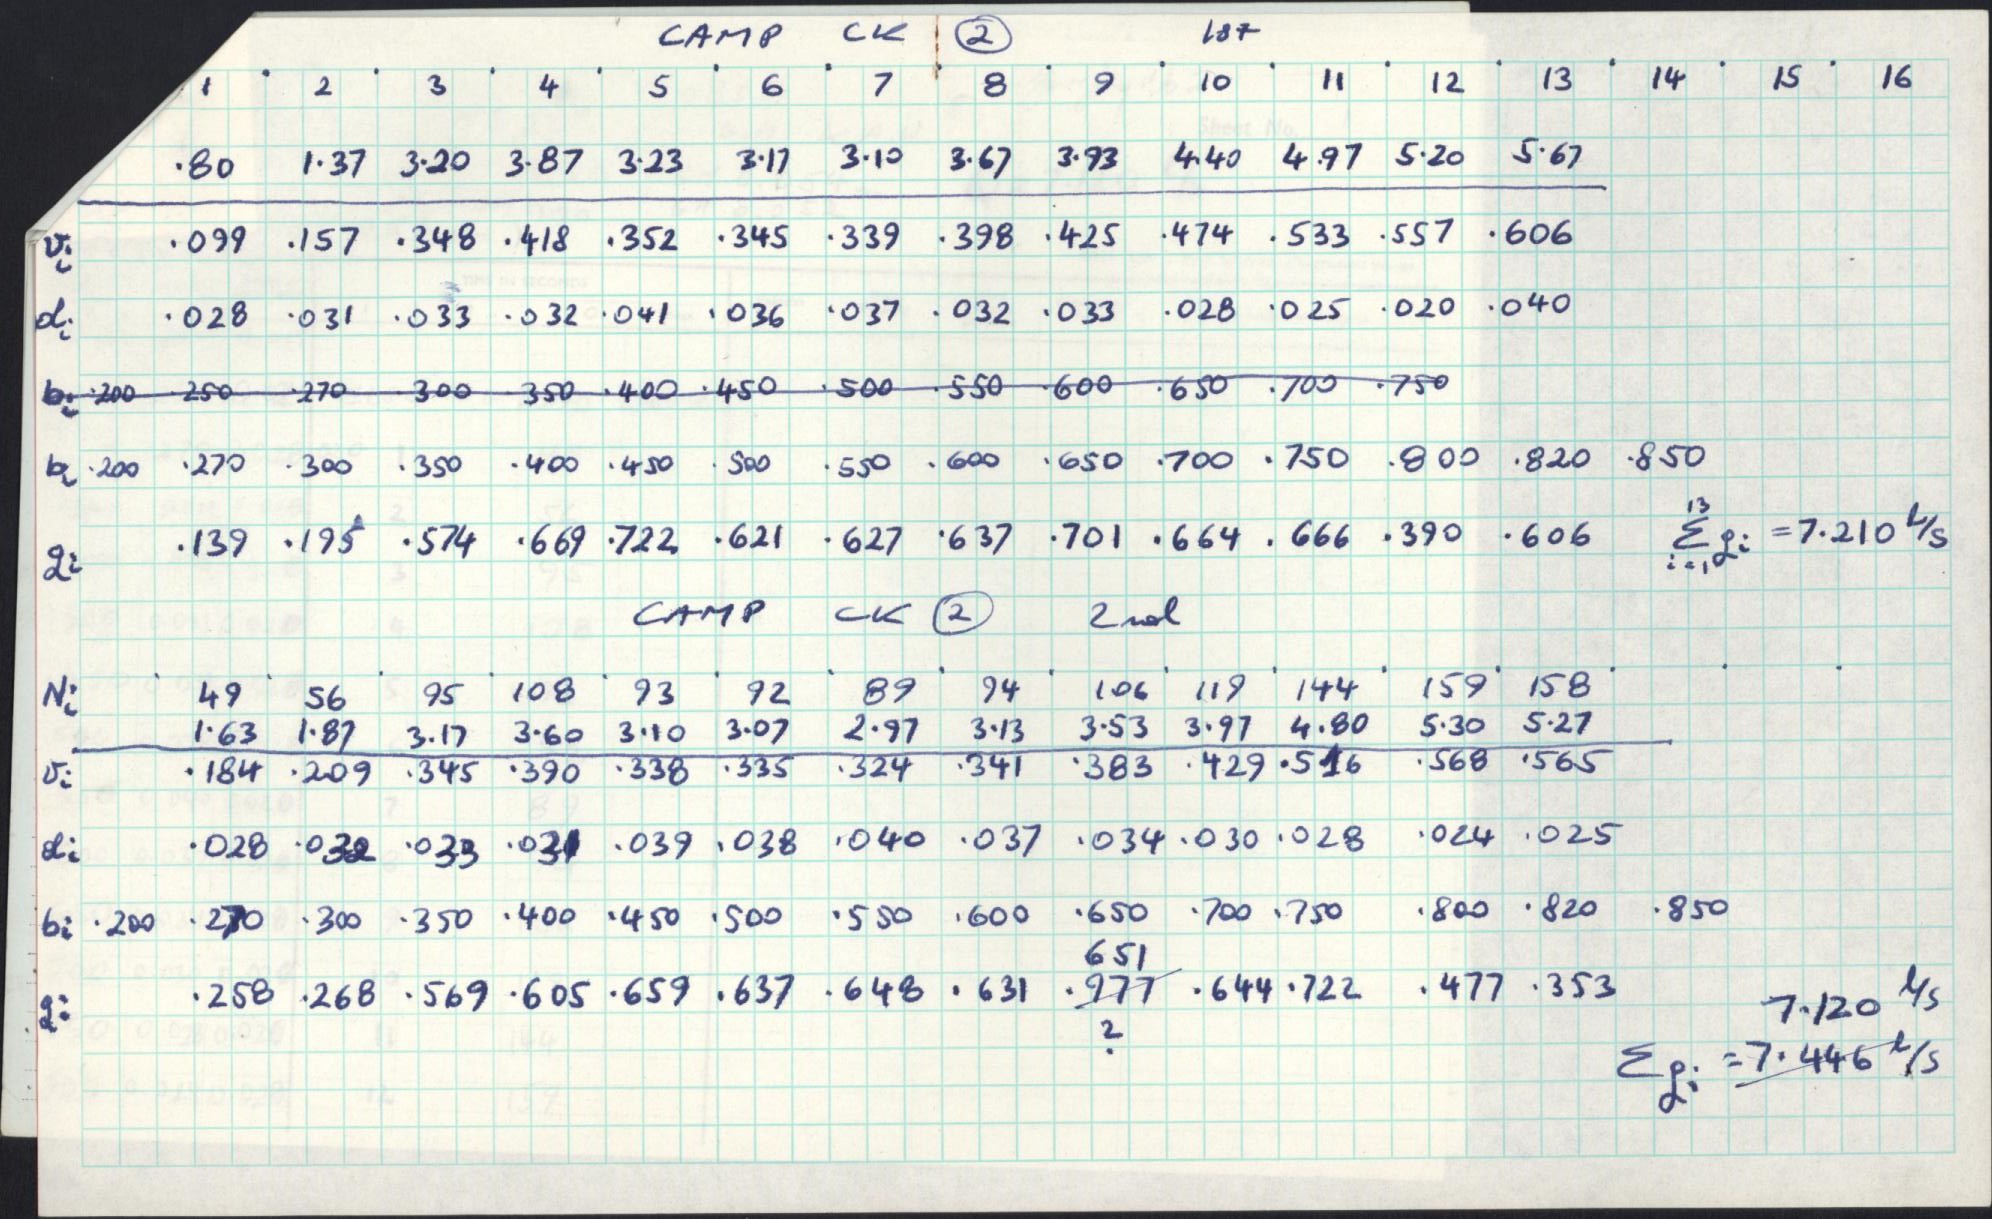 CAMP CK ② 1st
1 2 3 4 5 6 7 8 9 10 11 12 13 14 15 16
Sheet No.
.80 1.37 3.20 3.87 3.23 3.17 3.10 3.67 3.93 4.40 4.97 5.20 5.67
vi .099 .157 .348 .418 .352 .345 .339 .398 .425 .474 .533 .557 .606
TIME IN SECONDS
di .028 .031 .033 .032 .041 .036 .037 .032 .033 .028 .025 .020 .040
bi .200 .250 .270 .300 .350 .400 .450 .500 .550 .600 .650 .700 .750
bi .200 .270 .300 .350 .400 .450 .500 .550 .600 .650 .700 .750 .800 .820 .850
qi .139 .195 .574 .669 .722 .621 .627 .637 .701 .664 .666 .390 .606 13 Σ i=1 qi = 7.210 L/s
CAMP CK ② 2nd
Ni 49 56 95 108 93 92 89 94 106 119 144 159 158
1.63 1.87 3.17 3.60 3.10 3.07 2.97 3.13 3.53 3.97 4.80 5.30 5.27
vi .184 .209 .345 .390 .338 .335 .324 .341 .383 .429 .516 .568 .565
di .028 .032 .033 .031 .039 .038 .040 .037 .034 .030 .028 .024 .025
bi .200 .270 .300 .350 .400 .450 .500 .550 .600 .650 .700 .750 .800 .820 .850
651
qi .258 .268 .569 .605 .659 .637 .648 .631 .977 .644 .722 .477 .353
?
7.120 L/s
Σqi = 7.446 L/s